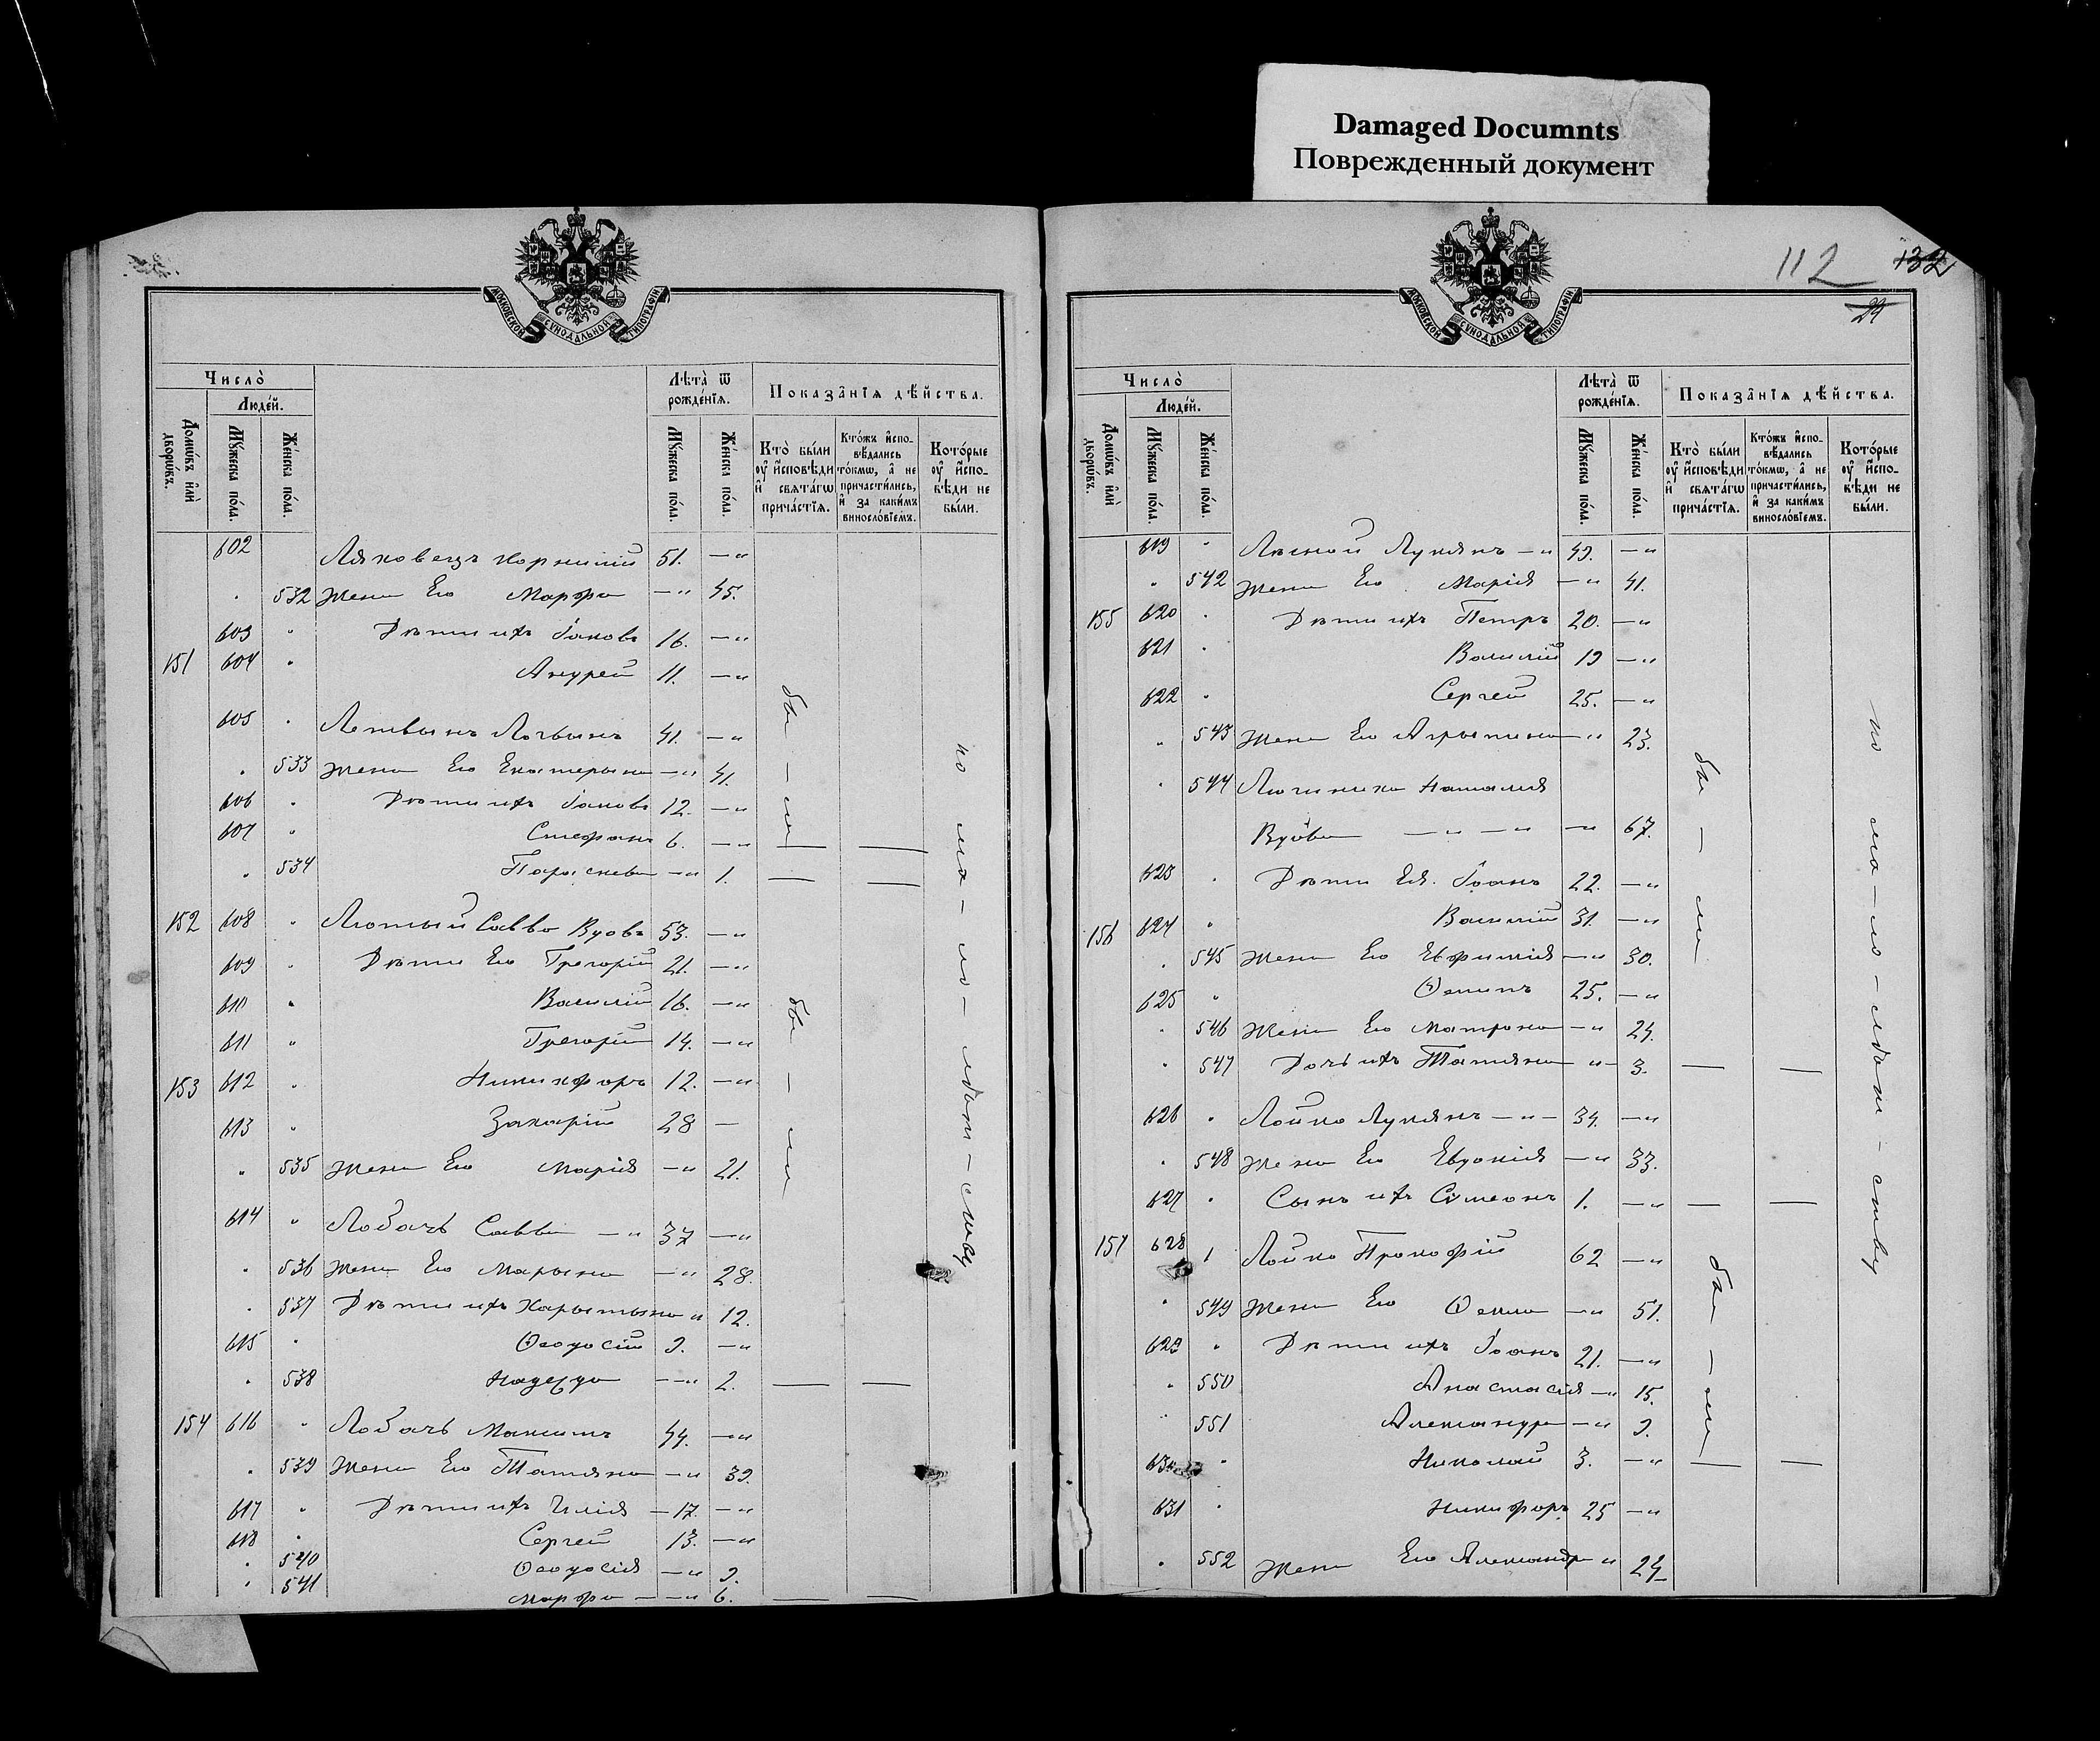 Damaged Documnts
Поврежденный документ
112 132
29
МОСКОВСКОЙ СѴНОДАЛЬНОЙ ТИПОГРАФІИ
Число̀
Люде́й.
Домѡ́въ и҆лѝ дворѡ́въ.
Мꙋ́жеска по́ла.
Же́нска по́ла.
Лѣта̀ ѿ рожде́нїѧ.
Мꙋ́жеска по́ла.
Же́нска по́ла.
Показа̑нїѧ дѣ́йства.
Кто̀ бы́ли ᲂу҆ и҆́сповѣди и҆ свѧта́гѡ прича́стїѧ.
Кто́жъ и҆спо-вѣ́дались то́кмѡ, а҆ не причасти́лись, и҆ за каки́мъ винносло́вїемъ.
Кото́рые ᲂу҆ и҆спо-вѣди не бы́ли.
602 Ляховецъ Корнилій 51. — "
532 Жена Его Марфа — " 45.
603 " Дѣти ихъ Іаковъ 16. — "
151 604 " Андрей 11. — "
605 " Летвынъ Логвынъ 41. — "
533 Жена Его Екатерына — " 41.
606 " Дѣти ихъ Іаковъ 12. — "
607 " Стефанъ 6. — "
" 534 Параскева — " 1. — —
152 608 " Лютый Савва Вдовъ 53. — "
609 " Дѣти Его Григорій 21. — "
610 " Василій 16. — "
611 " Григорій 14. — "
153 612 " Никифоръ 12. — "
613 " Захарій 28 —
" 535 Жена Его Марія — " 21.
614 " Лобачь Савва — " 37 — "
" 536 Жена Его Марына — " 28.
" 537 Дѣти ихъ Харытына " 12.
615 " Ѳеодосій 9. — "
" 538 Надежда — " 2. — —
154 616 " Лобачь Максимъ 44. — "
" 539 Жена Его Татіяна — " 39.
617 " Дѣти ихъ Илія — 17. — "
618 " Сергей 13. — "
" 540 Ѳеодосія — " 9.
" 541 Марфа — — " 6. — —
бы — ли
бы — ли
по ма — ло — лѣт — ству
Число̀
Люде́й.
Домѡ́въ и҆лѝ дворѡ́въ.
Мꙋ́жеска по́ла.
Же́нска по́ла.
Лѣта̀ ѿ рожде́нїѧ.
Мꙋ́жеска по́ла.
Же́нска по́ла.
Показа̑нїѧ дѣ́йства.
Кто̀ бы́ли ᲂу҆ и҆́сповѣди и҆ свѧта́гѡ прича́стїѧ.
Кто́жъ и҆спо-вѣ́дались то́кмѡ, а҆ не причасти́лись, и҆ за каки́мъ винносло́вїемъ.
Кото́рые ᲂу҆ и҆спо-вѣди не бы́ли.
619 " Лѣсной Лукянъ — " 49. — "
" 542 Жена Его Марія — " 41.
155 620 " Дѣти ихъ Петръ 20. — "
621 " Василій 19 — "
622 " Сергей 25. — "
" 543 Жена Его Агрыпина — " 23.
" 544 Наталія
Вдова — " — " — 67.
623 " Дѣти Ея. Іоанъ 22. — "
156 624 " Василій 31. — "
" 545 Жена Его Евфимія — " 30.
625 " 25. — "
" 546 Жена Его Матрона — " 24.
" 547 Дочь ихъ Татіяна " — 3. — —
626 " Лойко Лукянъ — " — 34. — "
" 548 Жена Его Евдокія — " 33.
627 " Сынъ ихъ Сѵмеонъ 1. — " — —
157 628 Лойко Прокофій 62 — "
" 549 Жена Его Ѳекла — " 51.
629 " Дѣти ихъ Іоанъ 21. — "
" 550 Анастасія — " 15.
" 551 Александра — " 9.
630 " Николай 3. — " — —
631 " Никифоръ 25 — "
" 552 Жена Его Александра " 24
бы — ли
бы — ли
по ма — ло — лѣт — ству